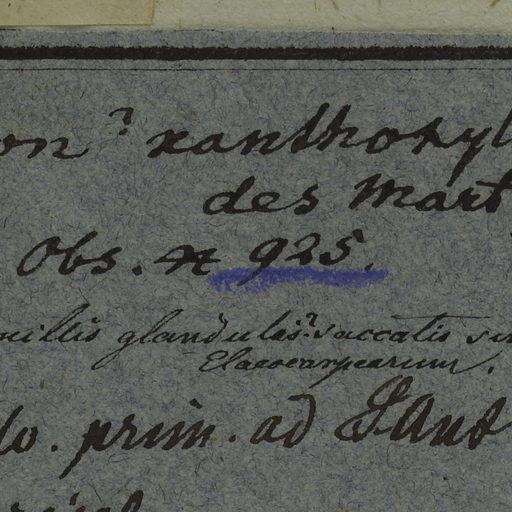 on? xanthoxyl
des Mart
Obs. N 925.
millis glandulis? saccatis sim
Elaeocarpearum.
do. prim. ad S Aut